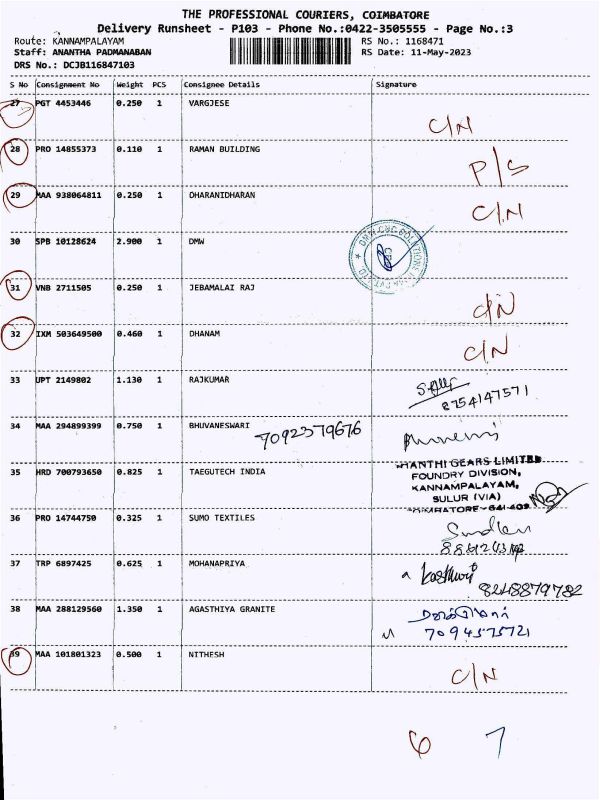 THE PROFESSIONAL COURIERS, COIMBATORE
Delivery Runsheet - P103 - Phone No.:0422-3505555 - Page No.:3
Route: KANNAMPALAYAM RS No.: 1168471
Staff: ANANTHA PADMANABAN RS Date: 11-May-2023
DRS No.: DCJB116847103
S No Consignment No Weight PCS Consignee Details Signature
27 PGT 4453446 0.250 1 VARGJESE
C/N
28 PRO 14855373 0.110 1 RAMAN BUILDING
P/S
29 MAA 938064811 0.250 1 DHARANIDHARAN
C/N
30 SPB 10128624 2.900 1 DMW
31 VNB 2711505 0.250 1 JEBAMALAI RAJ
C/N
32 IXM 503649500 0.460 1 DHANAM
C/N
33 UPT 2149802 1.130 1 RAJKUMAR
8754147571
34 MAA 294899399 0.750 1 BHUVANESWARI
7092379676
35 HRD 700793650 0.825 1 TAEGUTECH INDIA
SHANTHI GEARS LIMITED
FOUNDRY DIVISION,
KANNAMPALAYAM,
SULUR (VIA)
COIMBATORE-641 402
36 PRO 14744750 0.325 1 SUMO TEXTILES
37 TRP 6897425 0.625 1 MOHANAPRIYA
8248879782
38 MAA 288129560 1.350 1 AGASTHIYA GRANITE
7094575721
39 MAA 101801323 0.500 1 NITHESH
C/N
6 7